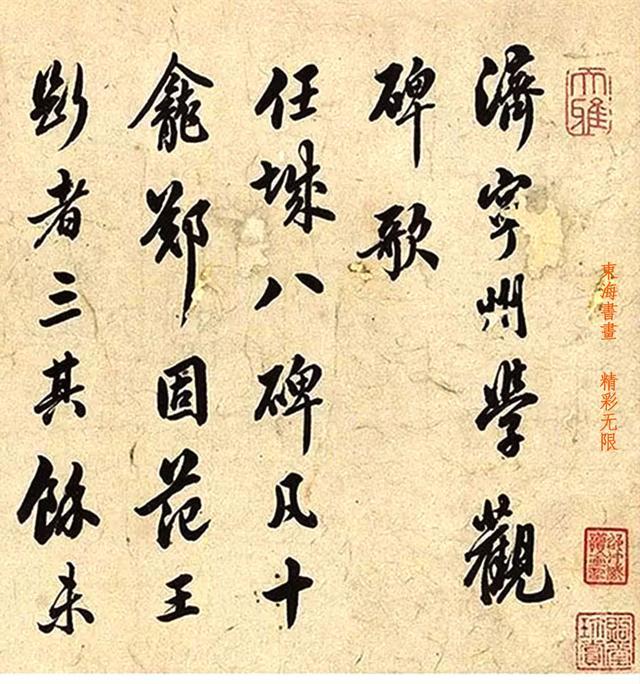 大雅
濟寧州學觀
碑歌
任城八碑凡十
龕鄭固范王
斷者三其餘未
東海書畫 精彩无限